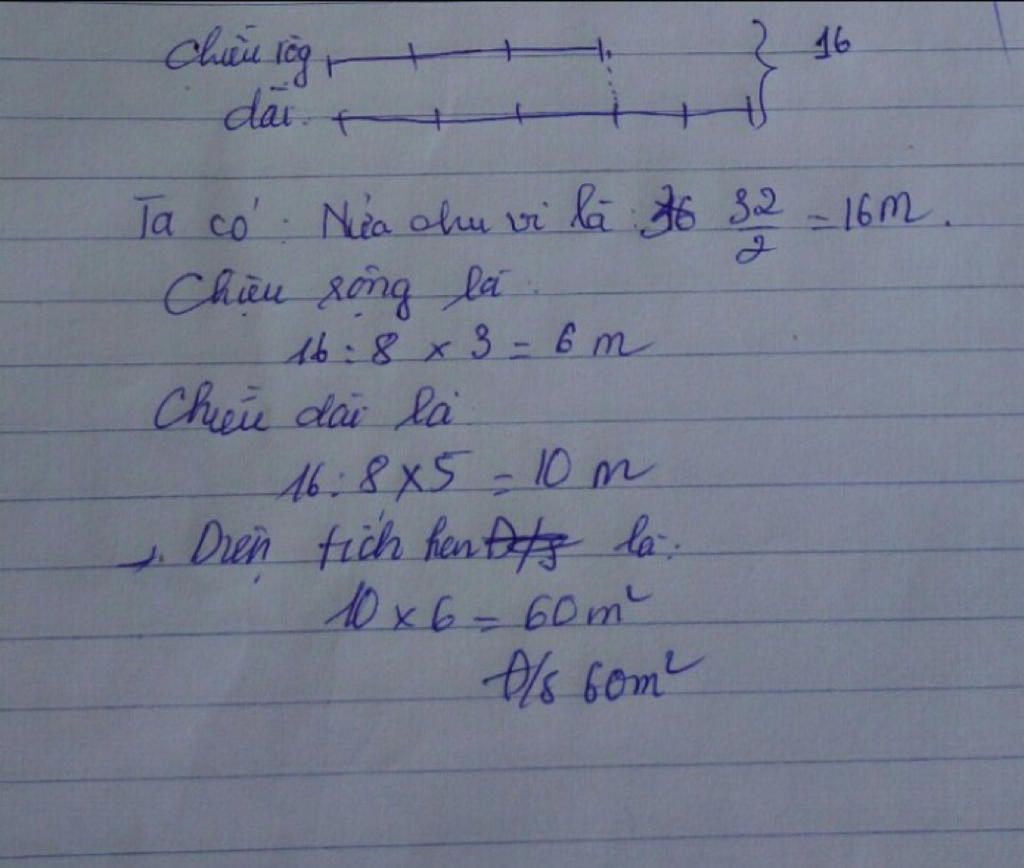 Chiều rộg 16
dài.
Ta có: Nửa chu vi là: 32/2 = 16m.
Chiều rộng là
16 : 8 x 3 = 6 m
Chiều dài là
16 : 8 x 5 = 10 m
Diện tích là:
10 x 6 = 60m²
Đ/s 60m²